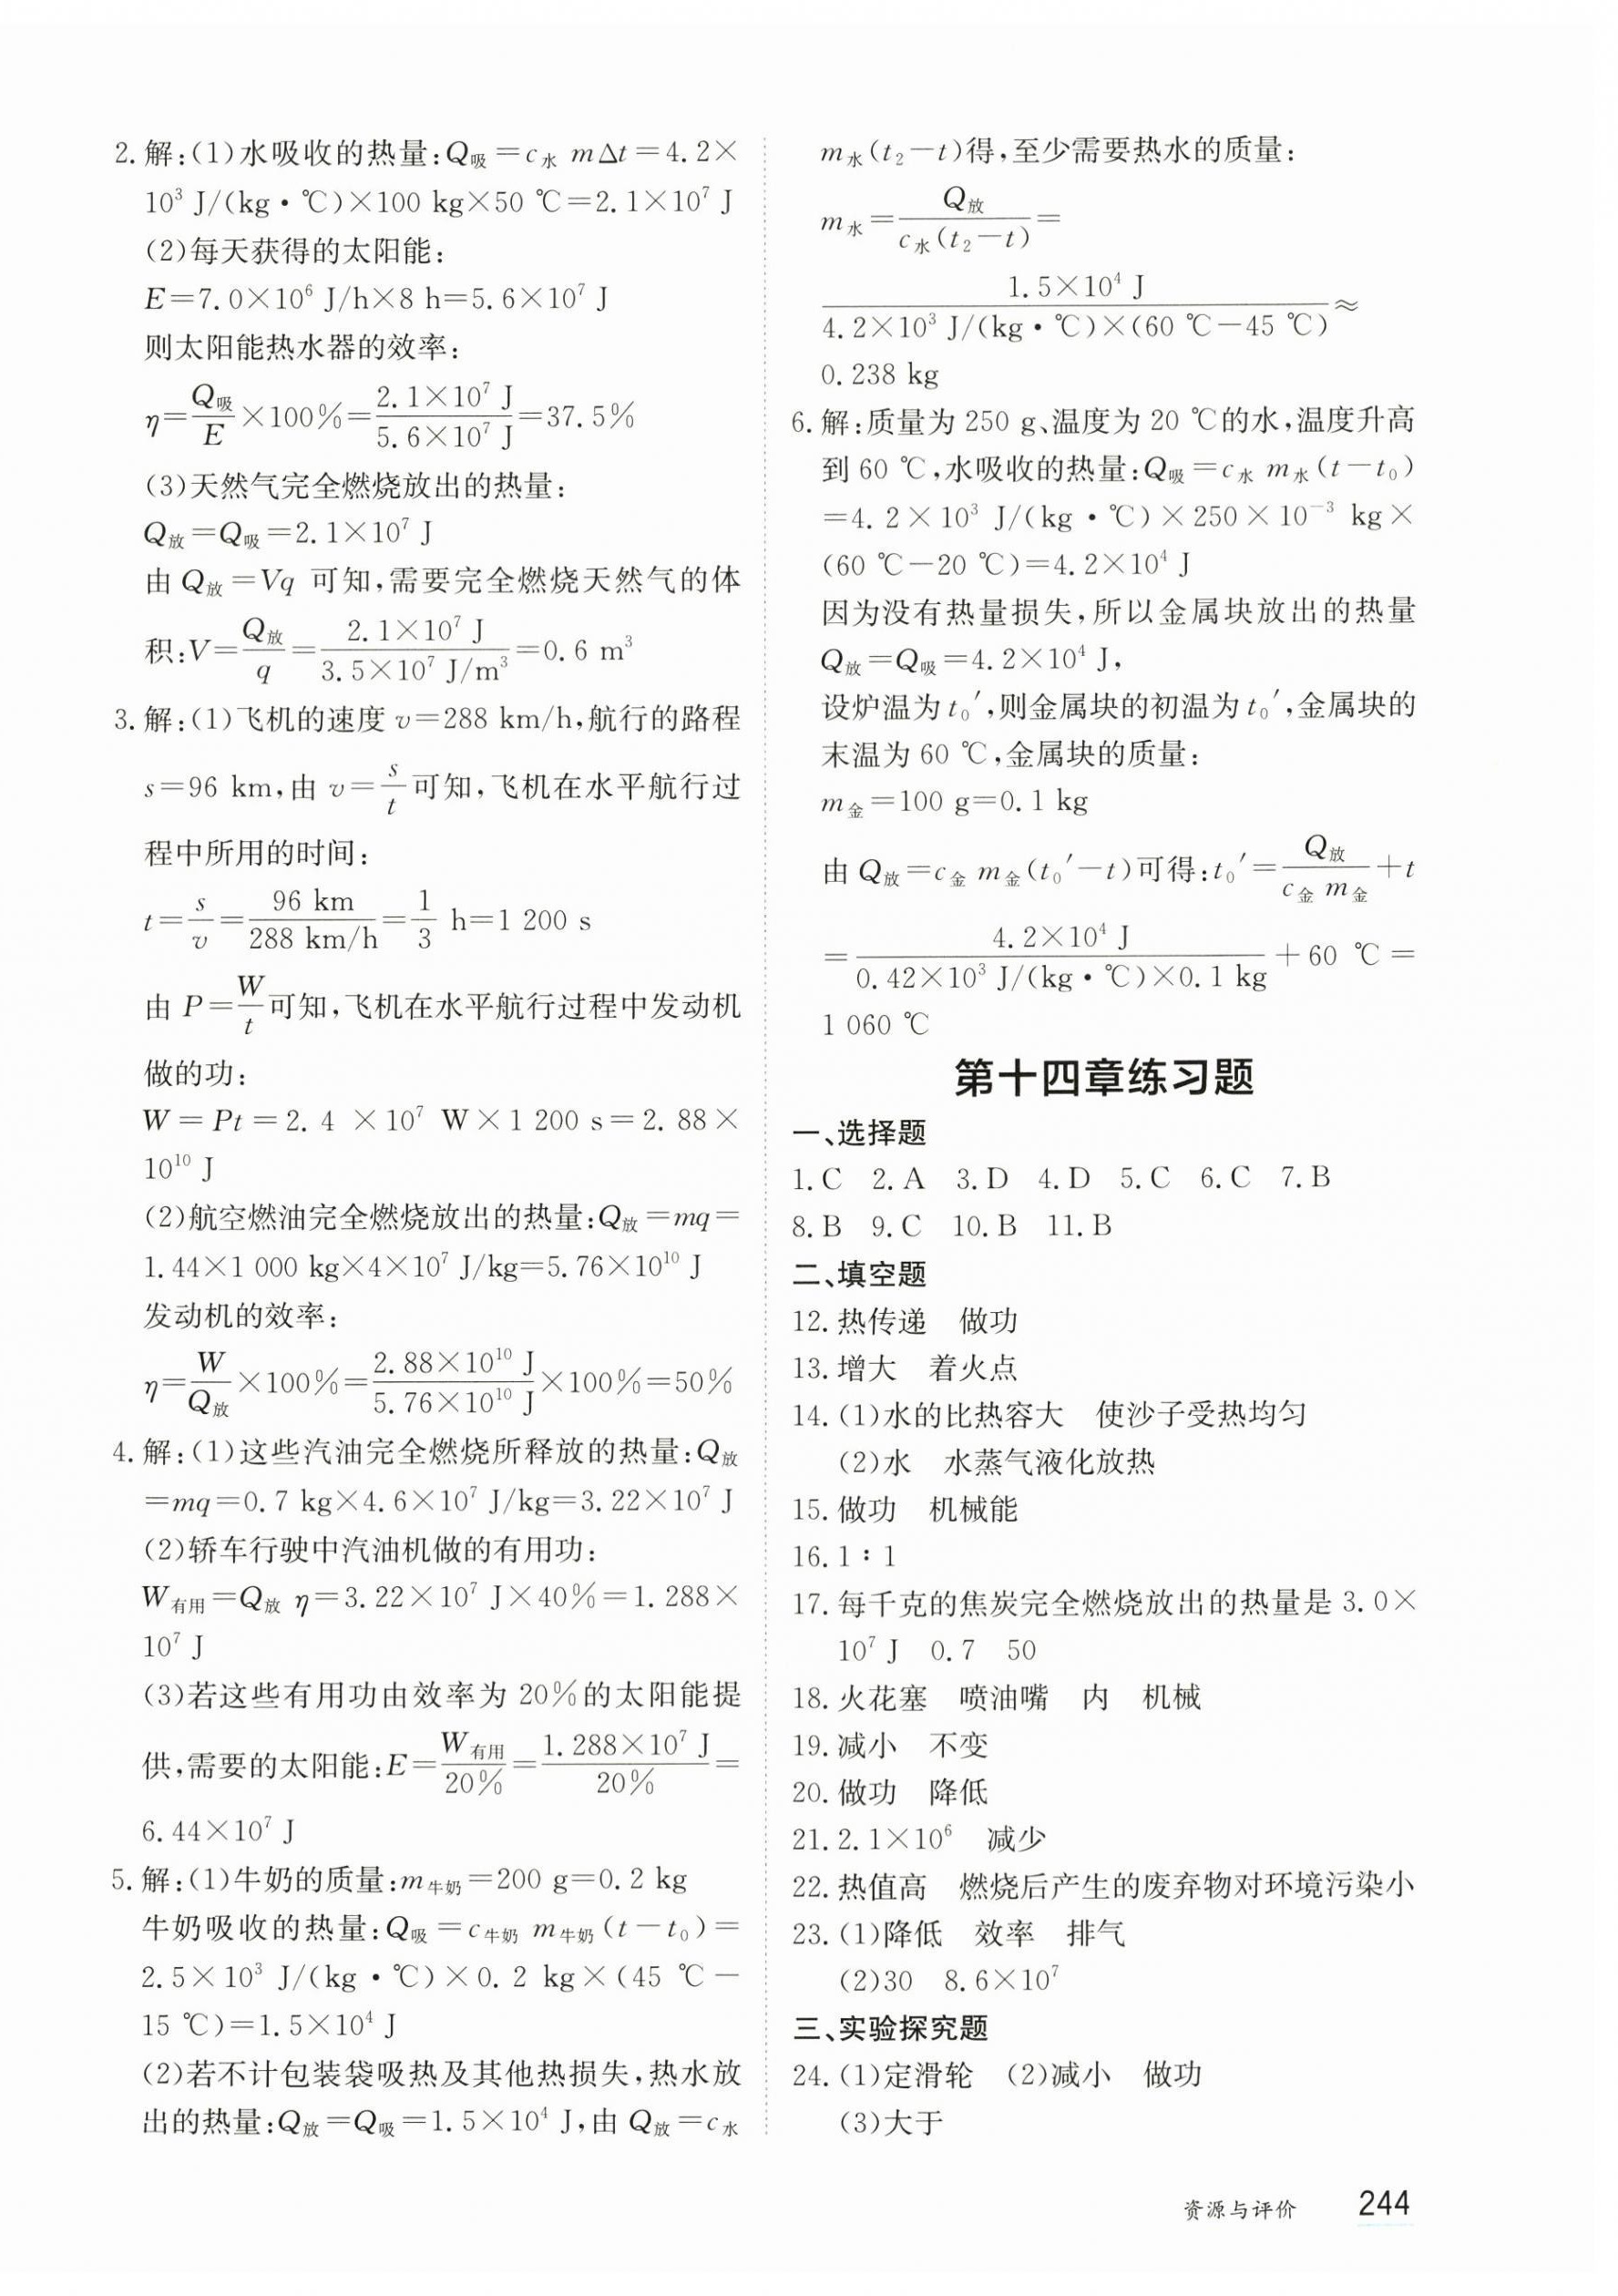 2. 解:(1)水吸收的热量:Q吸=c水 mΔt=4.2×
10³ J/(kg·℃)×100 kg×50 ℃=2.1×10⁷ J
(2)每天获得的太阳能:
E=7.0×10⁶ J/h×8 h=5.6×10⁷ J
则太阳能热水器的效率:
η=Q吸/E×100%=2.1×10⁷ J/5.6×10⁷ J=37.5%
(3)天然气完全燃烧放出的热量:
Q放=Q吸=2.1×10⁷ J
由 Q放=Vq 可知,需要完全燃烧天然气的体
积:V=Q放/q=2.1×10⁷ J/3.5×10⁷ J/m³=0.6 m³
3. 解:(1)飞机的速度 v=288 km/h,航行的路程
s=96 km,由 v=s/t可知,飞机在水平航行过
程中所用的时间:
t=s/v=96 km/288 km/h=1/3 h=1 200 s
由 P=W/t可知,飞机在水平航行过程中发动机
做的功:
W=Pt=2.4 ×10⁷ W×1 200 s=2.88×
10¹⁰ J
(2)航空燃油完全燃烧放出的热量:Q放=mq=
1.44×1 000 kg×4×10⁷ J/kg=5.76×10¹⁰ J
发动机的效率:
η=W/Q放×100%=2.88×10¹⁰ J/5.76×10¹⁰ J×100%=50%
4. 解:(1)这些汽油完全燃烧所释放的热量:Q放
=mq=0.7 kg×4.6×10⁷ J/kg=3.22×10⁷ J
(2)轿车行驶中汽油机做的有用功:
W有用=Q放 η=3.22×10⁷ J×40%=1.288×
10⁷ J
(3)若这些有用功由效率为 20%的太阳能提
供,需要的太阳能:E=W有用/20%=1.288×10⁷ J/20%=
6.44×10⁷ J
5. 解:(1)牛奶的质量:m牛奶=200 g=0.2 kg
牛奶吸收的热量:Q吸=c牛奶 m牛奶(t-t₀)=
2.5×10³ J/(kg·℃)×0.2 kg×(45 ℃-
15 ℃)=1.5×10⁴ J
(2)若不计包装袋吸热及其他热损失,热水放
出的热量:Q放=Q吸=1.5×10⁴ J,由 Q放=c水
m水(t₂-t)得,至少需要热水的质量:
m水=Q放/c水(t₂-t)=
1.5×10⁴ J/4.2×10³ J/(kg·℃)×(60 ℃-45 ℃)≈
0.238 kg
6. 解:质量为 250 g、温度为 20 ℃的水,温度升高
到 60 ℃,水吸收的热量:Q吸=c水 m水(t-t₀)
=4.2×10³ J/(kg·℃)×250×10⁻³ kg×
(60 ℃-20 ℃)=4.2×10⁴ J
因为没有热量损失,所以金属块放出的热量
Q放=Q吸=4.2×10⁴ J,
设炉温为 t₀′,则金属块的初温为 t₀′,金属块的
末温为 60 ℃,金属块的质量:
m金=100 g=0.1 kg
由 Q放=c金 m金(t₀′-t)可得:t₀′=Q放/c金 m金+t
=4.2×10⁴ J/0.42×10³ J/(kg·℃)×0.1 kg+60 ℃=
1 060 ℃
第十四章练习题
一、选择题
1. C 2. A 3. D 4. D 5. C 6. C 7. B
8. B 9. C 10. B 11. B
二、填空题
12. 热传递 做功
13. 增大 着火点
14. (1)水的比热容大 使沙子受热均匀
(2)水 水蒸气液化放热
15. 做功 机械能
16. 1∶1
17. 每千克的焦炭完全燃烧放出的热量是 3.0×
10⁷ J 0.7 50
18. 火花塞 喷油嘴 内 机械
19. 减小 不变
20. 做功 降低
21. 2.1×10⁶ 减少
22. 热值高 燃烧后产生的废弃物对环境污染小
23. (1)降低 效率 排气
(2)30 8.6×10⁷
三、实验探究题
24. (1)定滑轮 (2)减小 做功
(3)大于
资源与评价 244